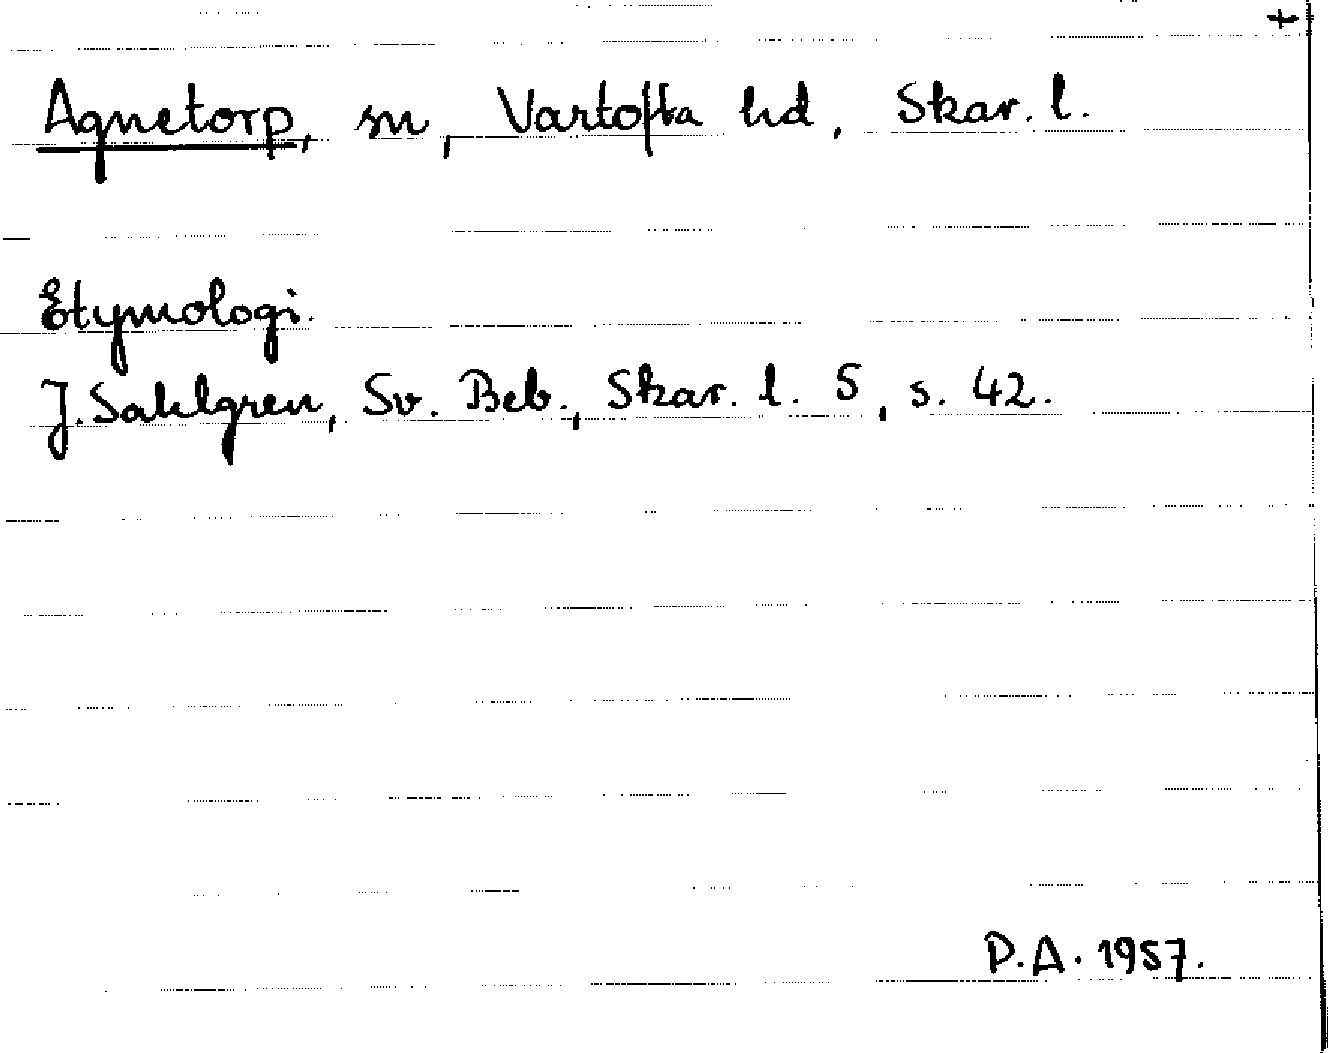 +
Agnetorp, sn, Vartofta hd, Skar. l.
Etymologi.
J. Sahlgren, Sv. Beb., Skar. l. 5, s. 42.
P.A. 1957.